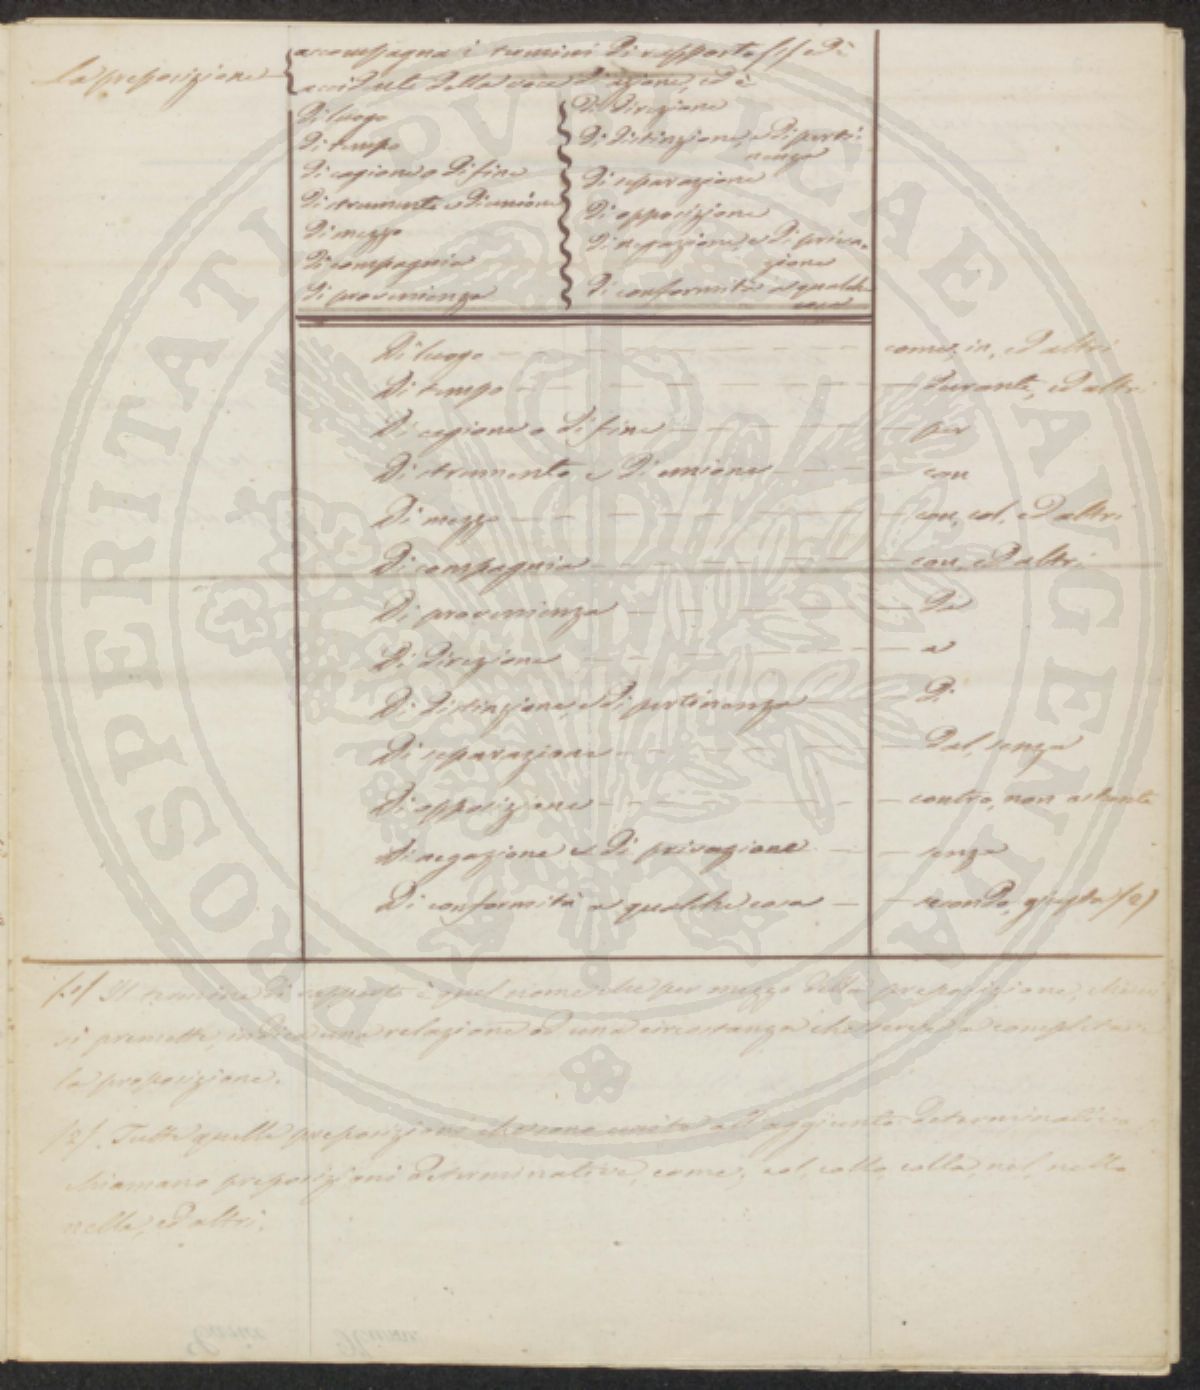 La preposizione
accompagna i termini di rapporto (1) ed è
accidente della voce d'azione, ed è
Di luogo
Di tempo
Di cagione o di fine
Di strumento e di unione
Di mezzo
Di compagnia
Di provenienza
Di direzione
Di distinzione, e di perti-
nenza
Di separazione
Di opposizione
Di negazione, e di priva-
zione
Di conformità a qualche
cosa
Di luogo — come, in, ed altri
Di tempo — durante, ed altri
Di cagione o di fine — per
Di strumento e di unione — con
Di mezzo — con, col, ed altri
Di compagnia — con, ed altri
Di provenienza — da
Di direzione — a
Di distinzione, e di pertinenza — di
Di separazione — dal, senza
Di opposizione — contro, non ostante
Di negazione e di privazione — senza
Di conformità a qualche cosa — secondo, giusta (2)
(1) Il termine di rapporto è quel nome che per mezzo della preposizione, che
si premette, indica una relazione od una circostanza che serve a completare
la proposizione.
(2). Tutte quelle preposizioni che sono unite all'aggiunto determinativo
chiamano preposizioni determinative, come, col, collo, colla, nel, nello
nella, ed altri.
PROSPERITATI PUBLICAE AUGENDAE